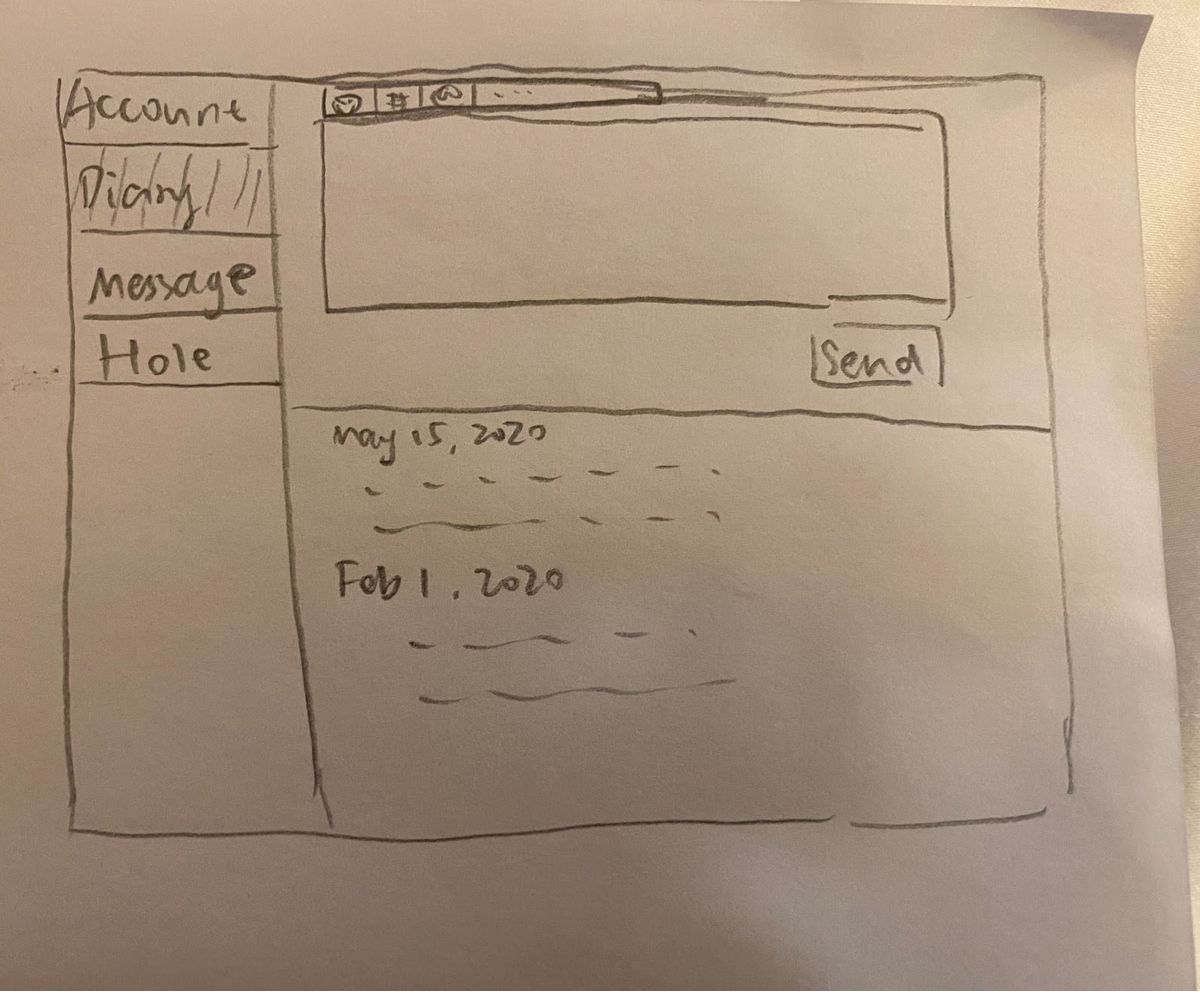 Account
Diary
Message
Hole
#
...
Send
May 15, 2020
Feb 1, 2020